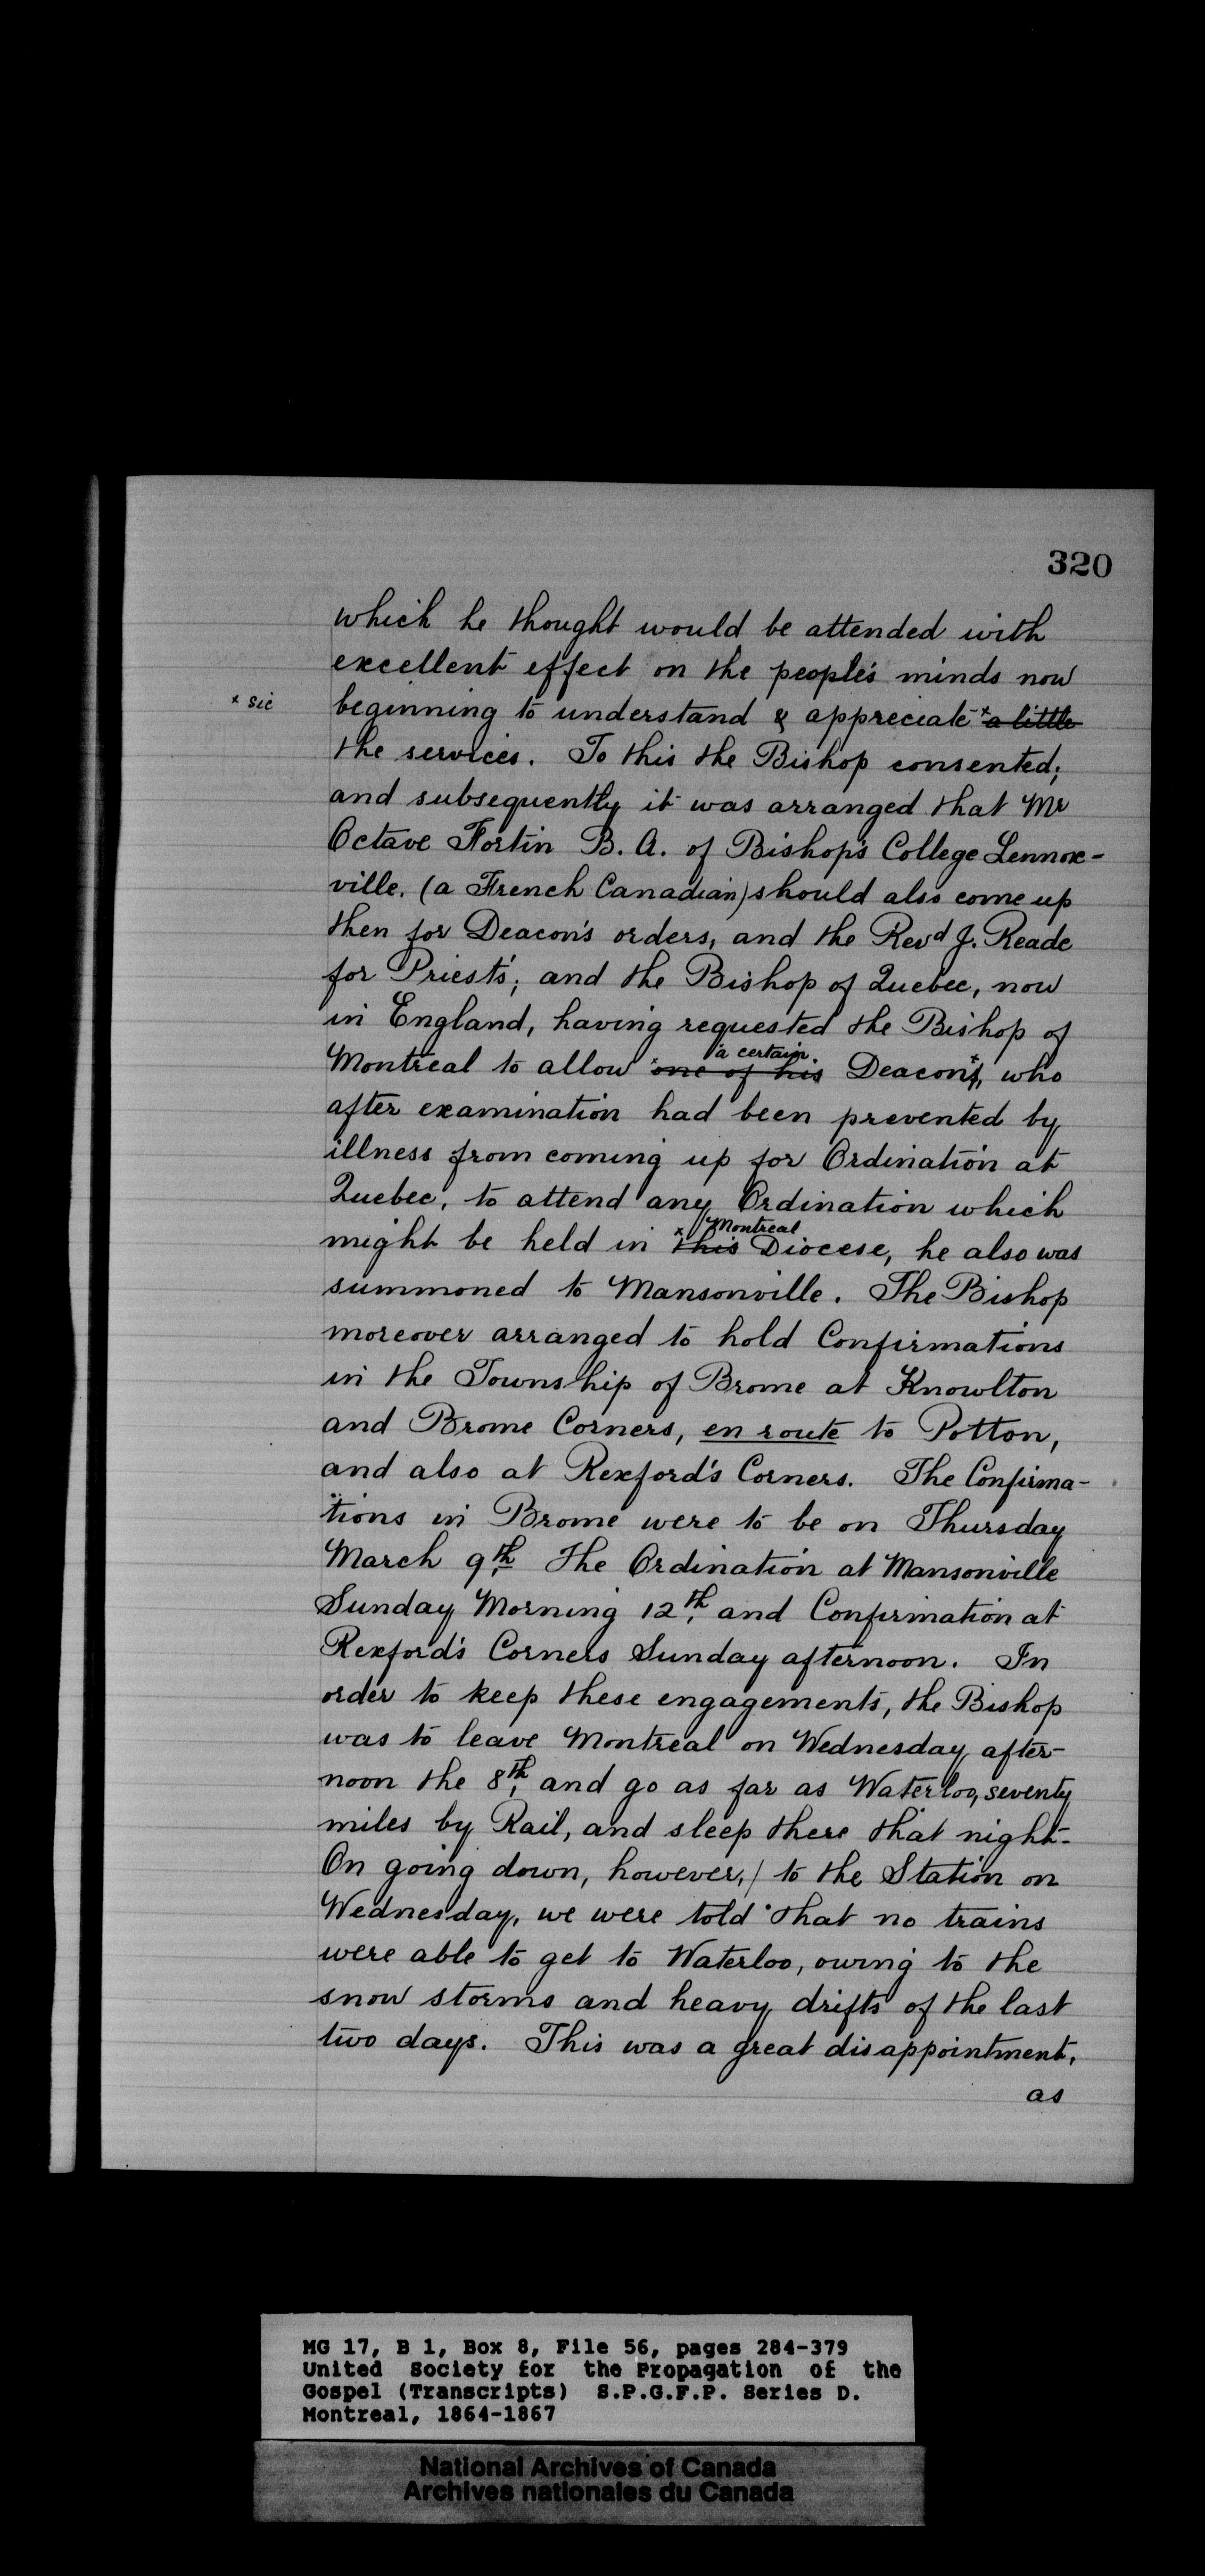 320
which he thought would be attended with
excellent effect on the people's minds now
× sic
beginning to understand & appreciate × a little
the services. To this the Bishop consented;
and subsequently it was arranged that Mr
Octave Fortin B. A. of Bishop's College Lennox-
ville. (a French Canadian) should also come up
then for Deacon's orders, and the Revd J. Reade
for Priests'; and the Bishop of Quebec, now
in England, having requested the Bishop of
a certain
Montreal to allow × one of his Deacons×, who
after examination had been prevented by
illness from coming up for Ordination at
Quebec, to attend any Ordination which
Montreal
might be held in × this Diocese, he also was
summoned to Mansonville. The Bishop
moreover arranged to hold Confirmations
in the Township of Brome at Knowlton
and Brome Corners, en route to Potton,
and also at Rexford's Corners. The Confirma-
tions in Brome were to be on Thursday
March 9th. The Ordination at Mansonville
Sunday Morning 12th, and Confirmation at
Rexford's Corners Sunday afternoon. In
order to keep these engagements, the Bishop
was to leave Montreal on Wednesday after-
noon the 8th, and go as far as Waterloo, seventy
miles by Rail, and sleep there that night.
On going down, however, / to the Station on
Wednesday, we were told that no trains
were able to get to Waterloo, owing to the
snow storms and heavy drifts of the last
two days. This was a great disappointment,
as
MG 17, B 1, Box 8, File 56, pages 284-379
United Society for the Propagation of the
Gospel (Transcripts) S.P.G.F.P. Series D.
Montreal, 1864-1867
National Archives of Canada
Archives nationales du Canada